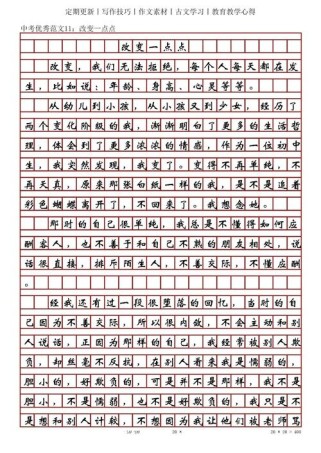 定期更新丨写作技巧丨作文素材丨古文学习丨教育教学心得
中考优秀范文11：改变一点点
改变一点点
改变，我们无法拒绝，每个人每天都在发
生，比如说：年龄、身高、心灵等等。
从幼儿到小孩，从小孩又到少女，经历了
两个变化阶级的我，渐渐明白了更多的生活哲
理，体会到了更多浓浓的情感，作为一位初中
生，我突然发现，我变了。变得不再单纯，不
再天真，原来那张白纸一样的我，可能是追着
彩色蝴蝶离开了，不回来了。我不想念她
那时的自己很单纯，我总是不懂得如何应
酬客人，也不爱和已不不熟的朋友相处，说
话很直接，排斥陌生人，不喜欢说话。
经我还有过一段很堕落的回忆，当时的自
己因为不善交际，所以很内敛，不会主动和别
人交流，也因为不善交际，经常让别人欺
负，却丝毫不反抗，在别人看来是懦弱的，是
胆小的，好欺负的，可并不是那样，我不是
胆小，不是懦弱，也不是好欺负，我只是，只
是想和别人计较，不想因为我让他们被老师骂